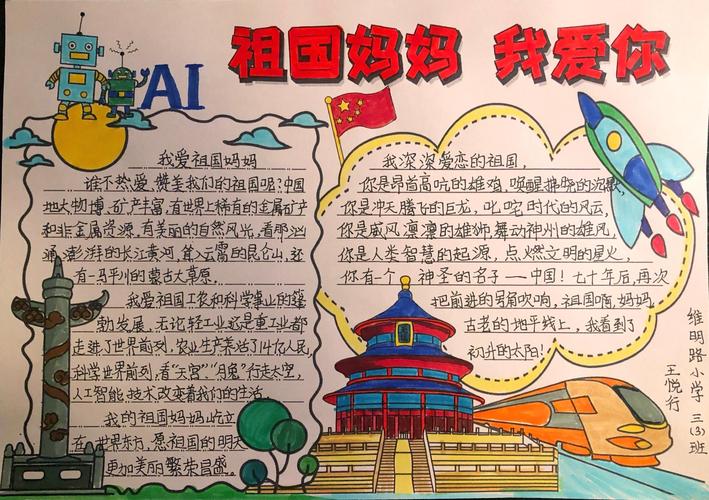 祖国妈妈 我爱你
AI
我爱祖国妈妈
谁不热爱、赞美我们的祖国呢?中国
地大物博、矿产丰富,有世界上稀有的金属矿产
和非金属资源,有美丽的自然风光,看那汹
涌澎湃的长江黄河,耸入云霄的昆仑山,还
有一马平川的蒙古大草原。
我爱祖国工农和科学事业的蓬
勃发展,无论轻工业还是重工业都
走进了世界前列,农业生产养活了14亿人民,
科学世界前列,看"天宫""月兔"行走太空,
人工智能技术改变着我们的生活。
我的祖国妈妈屹立
在世界东方,愿祖国的明天
更加美丽繁荣昌盛。
我深深爱恋的祖国,
你是昂首高吭的雄鸡,唤醒拂晓的沉默,
你是冲天腾飞的巨龙,叱咤时代的风云,
你是威风凛凛的雄狮,舞动神州的雄风,
你是人类智慧的起源,点燃文明的星火,
你有一个神圣的名字——中国!七十年后,再次
把前进的号角吹响,祖国啊,妈妈,
古老的地平线上,我看到了
初升的太阳!
维明路小学 三(3)班
王悦行